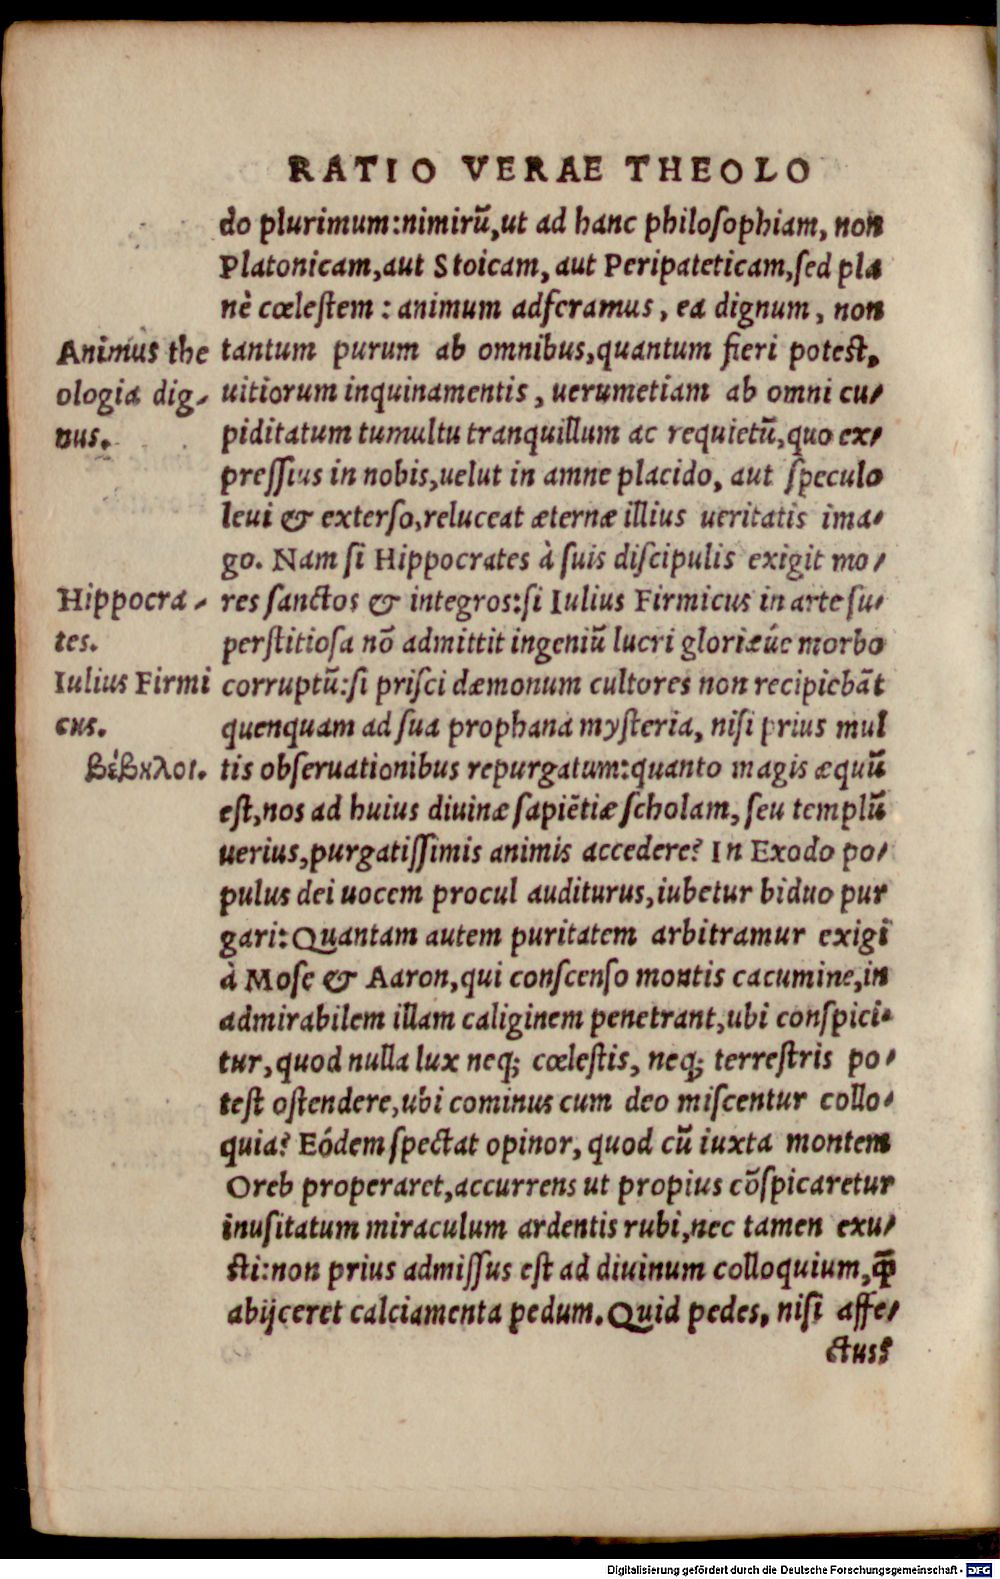 RATIO VERAE THEOLO
do plurimum:nimirũ,ut ad hanc philoſophiam, non
Platonicam,aut Stoicam, aut Peripateticam,ſed pla
nè cœleſtem : animum adferamus, ea dignum, non
Animus the
ologia dig-
nus.
tantum purum ab omnibus,quantum fieri poteſt,
uitiorum inquinamentis, uerumetiam ab omni cu-
piditatum tumultu tranquillum ac requietũ,quo ex-
preſſius in nobis,uelut in amne placido, aut ſpeculo
leui & exterſo,reluceat æternæ illius ueritatis ima-
go. Nam ſi Hippocrates à ſuis diſcipulis exigit mo-
Hippocra-
tes.
Iulius Firmi
cus.
Βέβηλοι.
res ſanctos & integros:ſi Iulius Firmicus in arte ſu-
perſtitioſa nõ admittit ingeniũ lucri gloriæúe morbo
corruptũ:ſi priſci dæmonum cultores non recipiebãt
quenquam ad ſua prophana myſteria, niſi prius mul
tis obſeruationibus repurgatum:quanto magis æquũ
eſt,nos ad huius diuinæ ſapiẽtiæ ſcholam, ſeu templũ
uerius,purgatiſſimis animis accedere? In Exodo po-
pulus dei uocem procul auditurus,iubetur biduo pur
gari: Quantam autem puritatem arbitramur exigi
à Moſe & Aaron,qui conſcenſo montis cacumine,in
admirabilem illam caliginem penetrant,ubi conſpici-
tur,quod nulla lux neq; cœleſtis, neq; terreſtris po-
teſt oſtendere,ubi cominus cum deo miſcentur collo-
quia? Eódem ſpectat opinor, quod cũ iuxta montem
Oreb properaret,accurrens ut propius cõſpicaretur
inuſitatum miraculum ardentis rubi,nec tamen exu-
ſti:non prius admiſſus eſt ad diuinum colloquium,q̃
abijceret calciamenta pedum. Quid pedes, niſi affe-
ctus?
Digitalisierung gefördert durch die Deutsche Forschungsgemeinschaft - DFG